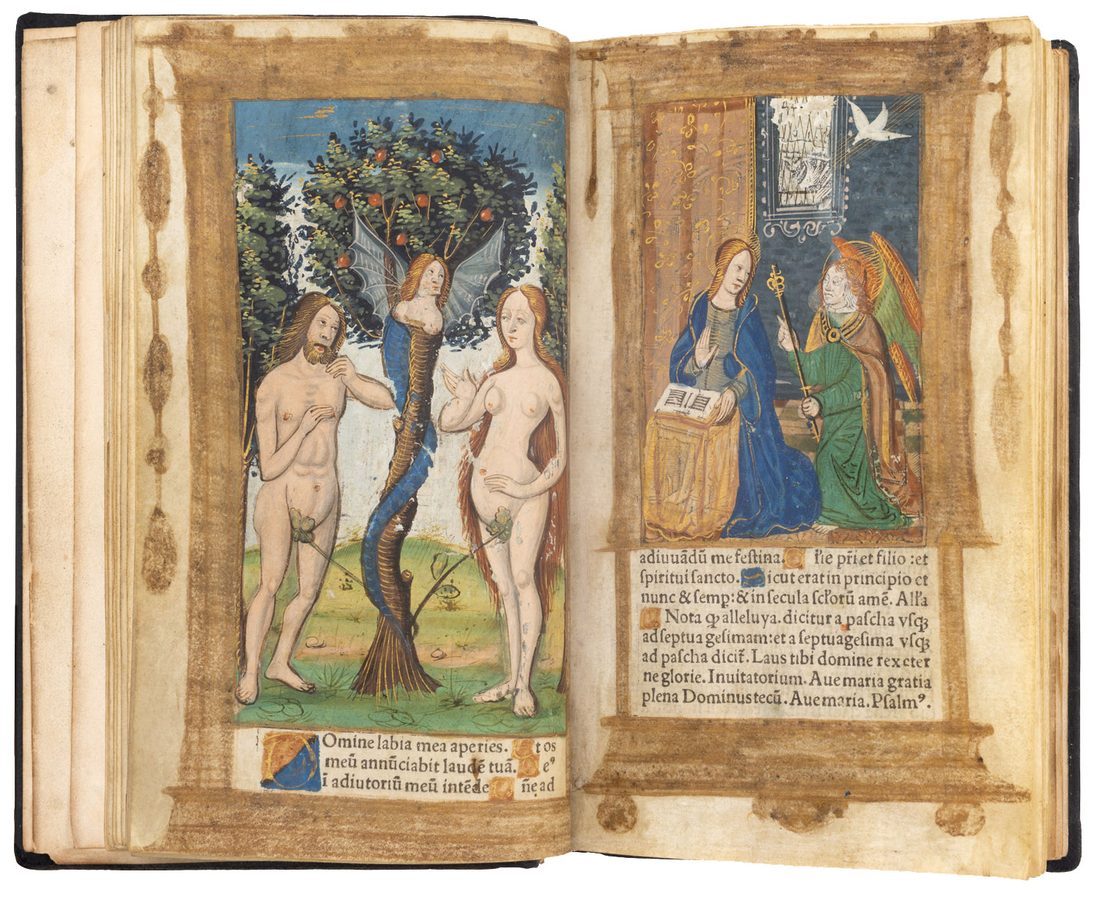 Omine labia mea aperies. t os
meū annūciabit laudē tuā. eꝰ
ī adiutoriū meū intēde ñe ad
adiuuādū me festina. l'ie pr̄i et filio : et
spiritui sancto. icut erat in principio et
nunc & semp: & in secula scl'orū amē. All'a
Nota ꝙ alleluya. dicitur a pascha vsqꝫ
ad septua gesimam: et a septuagesima vsqꝫ
ad pascha dicit̄. Laus tibi domine rex eter
ne glorie. Inuitatorium. Aue maria gratia
plena Dominus tecū. Aue maria. Psalmꝰ.